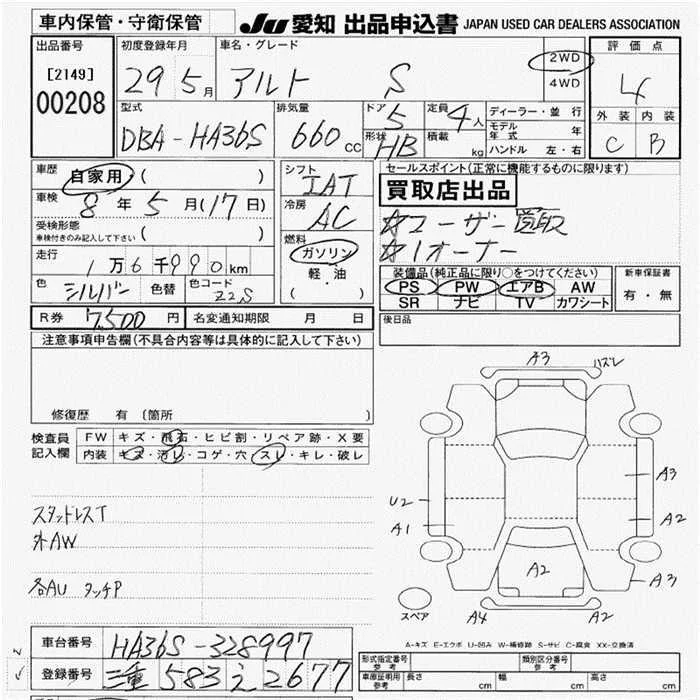 車内保管・守衛保管 JU 愛知 出品申込書 JAPAN USED CAR DEALERS ASSOCIATION
出品番号 初度登録年月 車名・グレード 2WD 評価点
[2149] 29 5月 アルト S 4WD 4
00208 型式 排気量 ドア 5 定員 4人 ディーラー・並行 外装 内装
DBA-HA36S 660cc 形状 HB 積載 kg モデル年式 年 C B
ハンドル 左・右
車歴 自家用・( ) シフト IAT セールスポイント(正常に機能するものに限ります)
車検 8年5月(17日) 冷房 AC 買取店出品
受検形態 ( ) ☆ユーザー買取
車検付きのみ記入して下さい 燃料 ☆1オーナー
走行 1万6千990km ガソリン
軽・油 装備品(純正品に限り○をつけてください) 新車保証書
色 シルバー 色替 色コード Z2S ( ) PS PW エアB AW 有・無
SR ナビ TV カワシート
R券 7,500円 名変通知期限 月 日 後日品
注意事項申告欄(不具合内容等は具体的に記入して下さい)
A3 ハズレ
修復歴 有 (箇所 )
検査員 FW キズ・飛石・ヒビ割・リペア跡・X要
記入欄 内装 キズ・汚レ・コゲ・穴・スレ・キレ・破レ
A3
U2
A2
A1
スタッドレスT
外AW
A2
A3
各AU タッチP
スペア A4 A2
A-キズ E-エクボ U-凹み W-補修跡 S-サビ C-腐食 XX-交換済
車台番号 HA36S-328997
形式指定番号 参考 類別区分番号 参考
登録番号 三重 583 え 2677
車庫証明用 参考 長さ cm 幅 cm 高さ cm